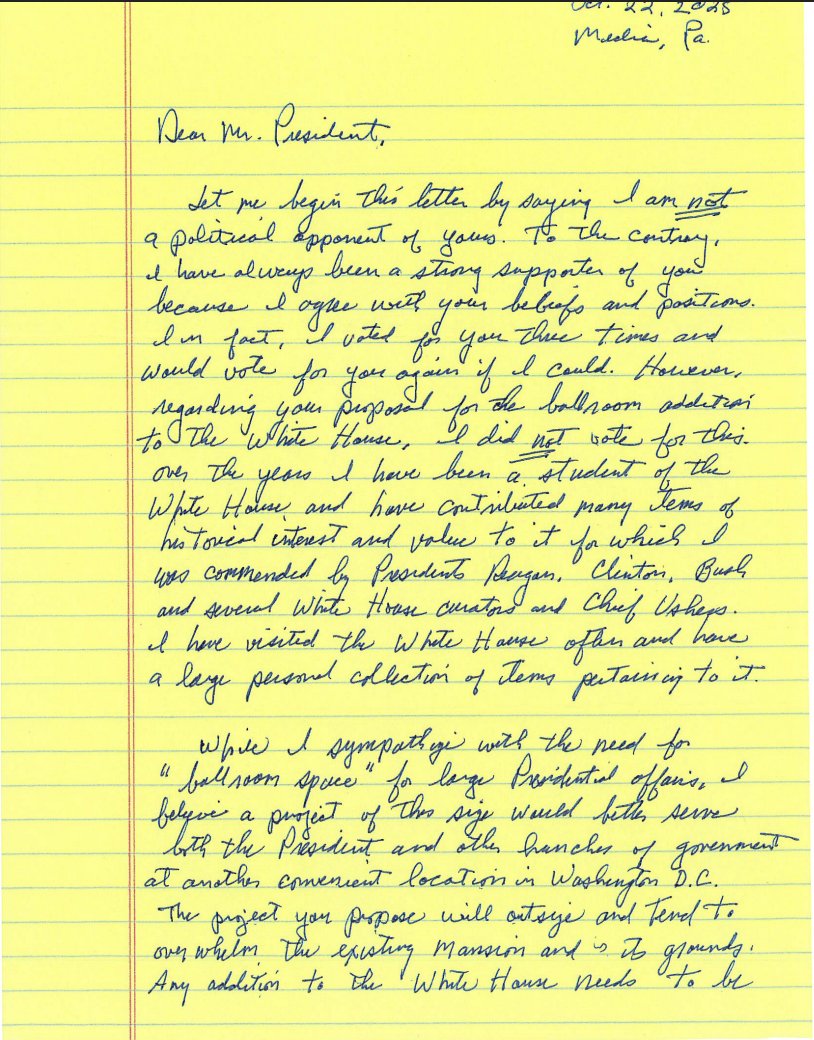 Oct. 22, 2025
Media, Pa.
Dear Mr. President,
Let me begin this letter by saying I am not
a political opponent of yours. To the contrary,
I have always been a strong supporter of you
because I agree with your beliefs and positions.
I in fact, I voted for you three times and
would vote for you again if I could. However,
regarding your proposal for the ballroom addition
to the White House, I did not vote for this.
over the years I have been a student of the
White House and have contributed many items of
historical interest and value to it for which I
was commended by Presidents Reagan, Clinton, Bush
and several White House curators and Chief Ushers.
I have visited the White House often and have
a large personal collection of items pertaining to it.
While I sympathize with the need for
"ballroom space" for large Presidential affairs, I
believe a project of this size would better serve
both the President and other branches of government
at another convenient location in Washington D.C.
The project you propose will outsize and tend to
overwhelm the existing Mansion and is its grounds.
Any addition to the White House needs to be